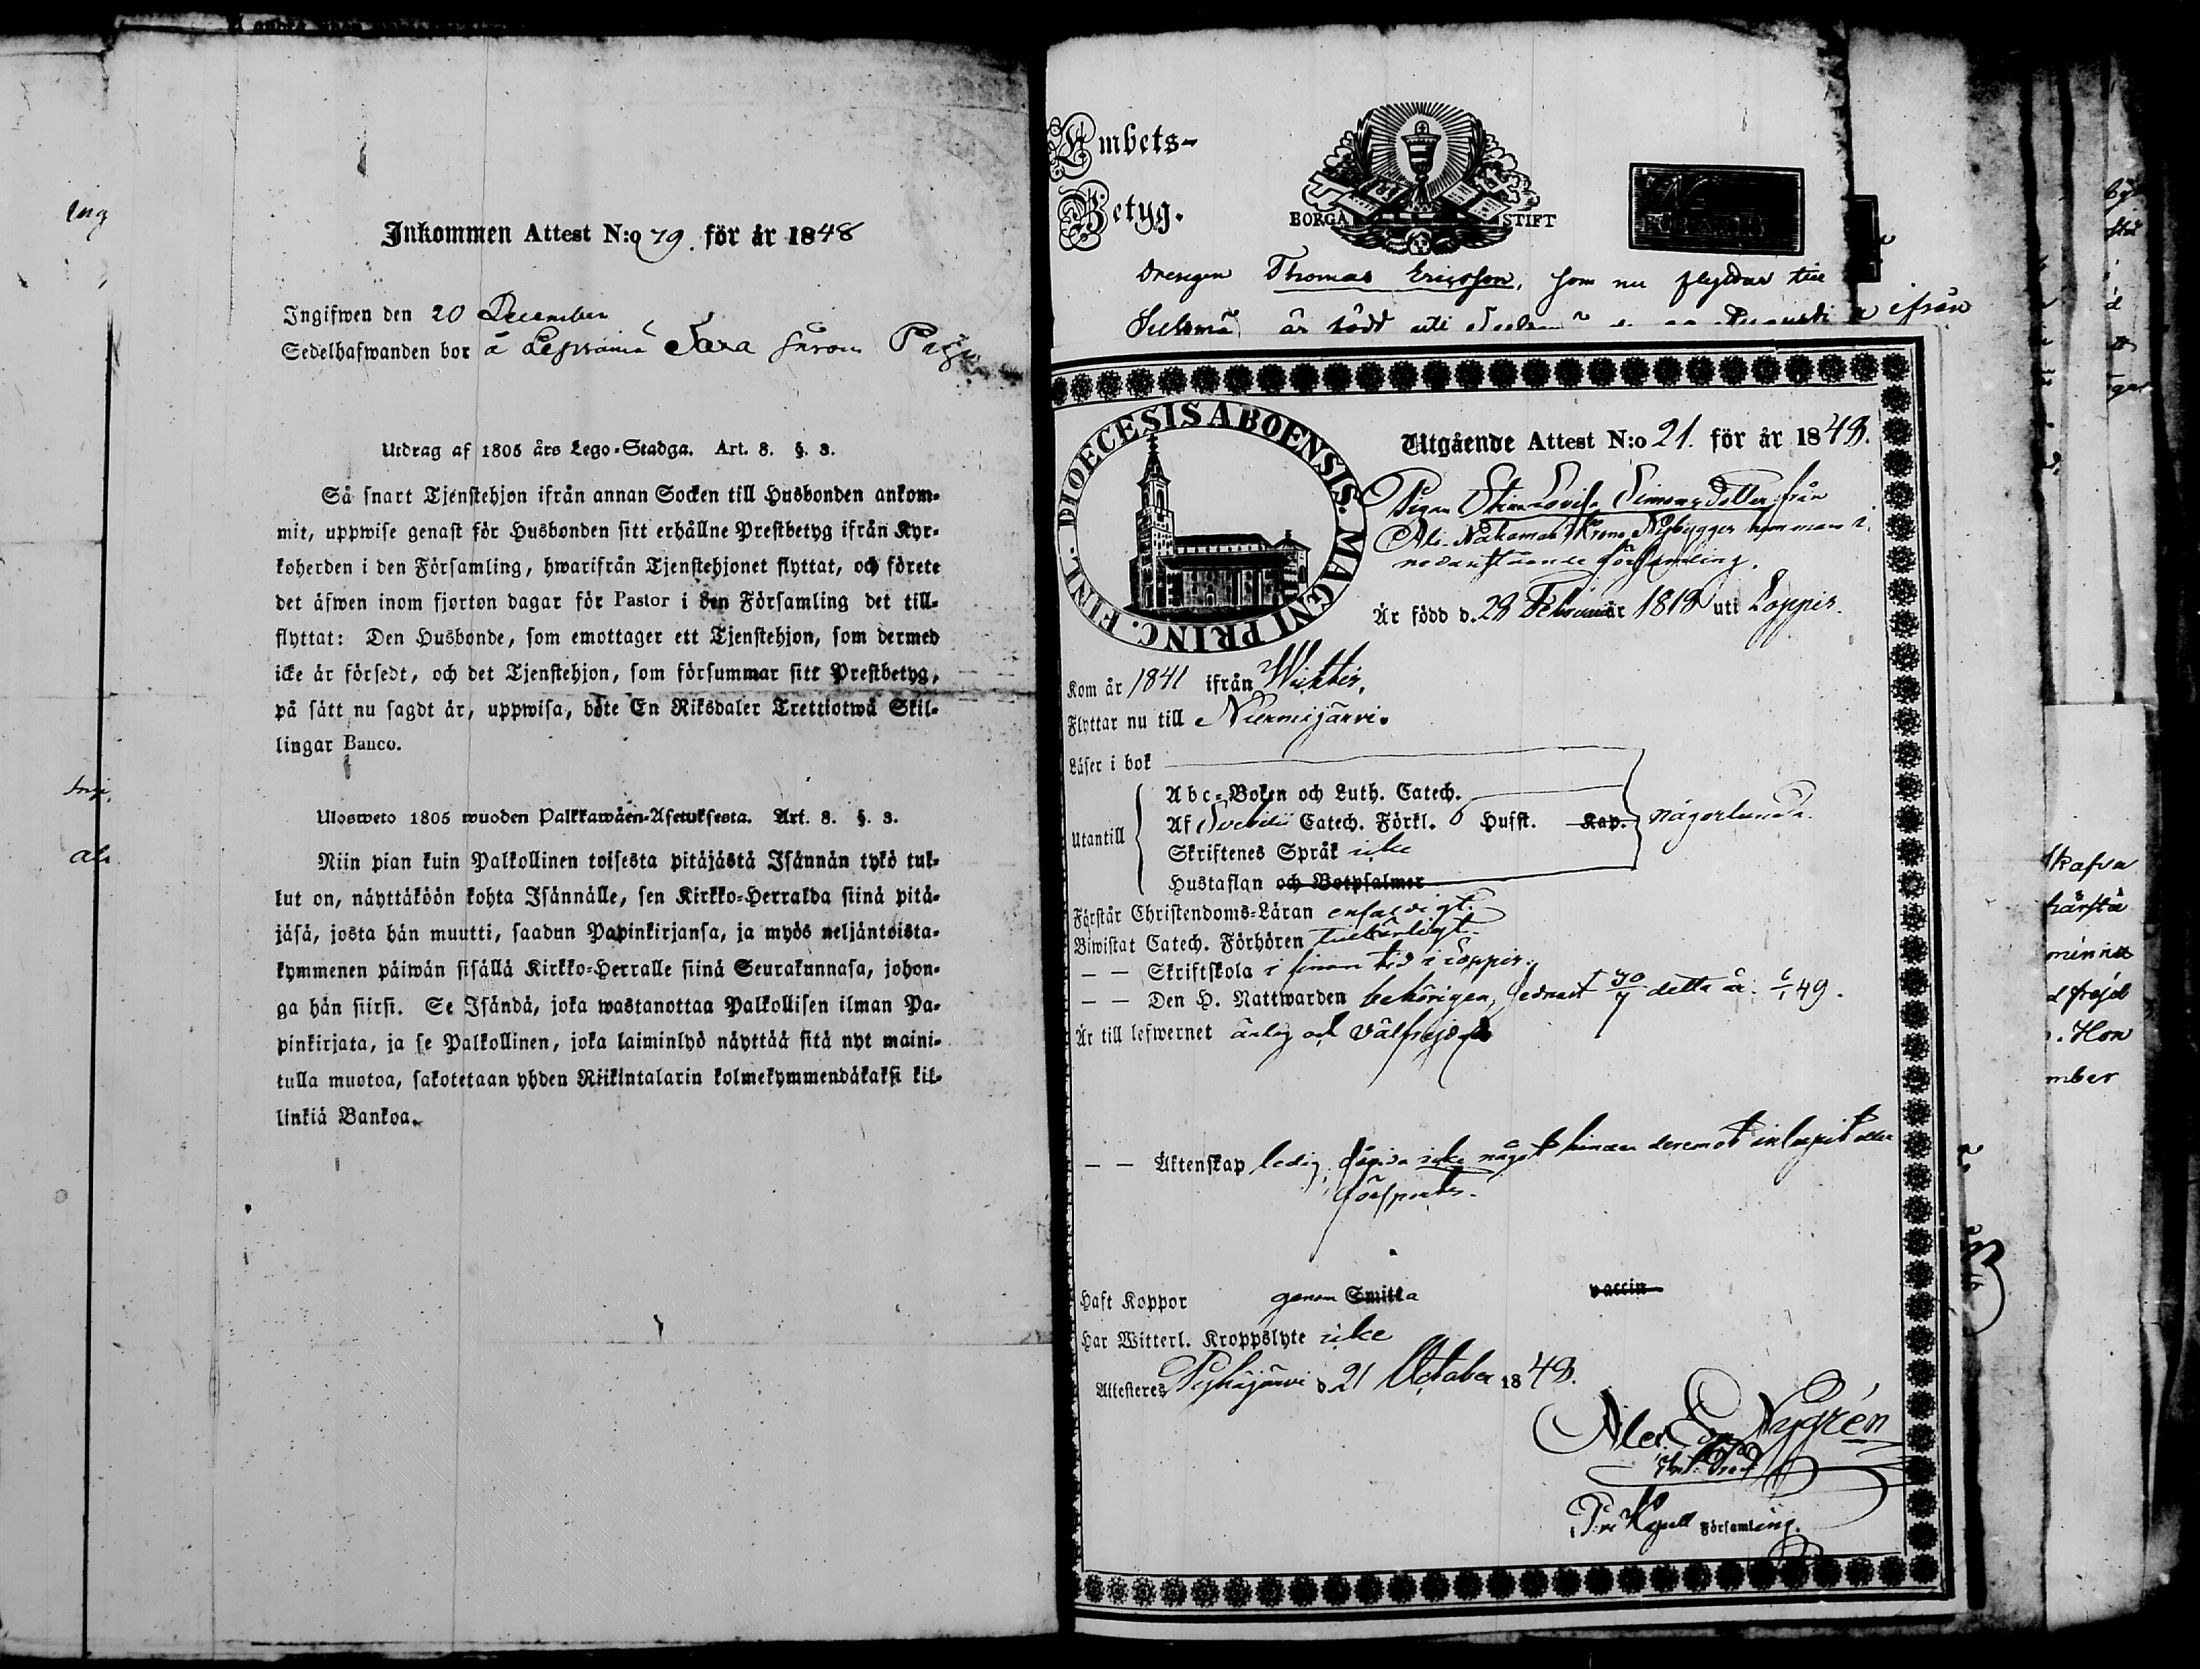 Inkommen Attest N:o 79. för år 1848
Ingifwen den 20 December
Sedelhafwanden bor å Sara
Utdrag af 1805 års Lego-Stadga. Art. 8. §. 3.
Så snart Tjenstehjon ifrån annan Socken till Husbonden ankom-
mit, uppwise genast för Husbonden sitt erhållne Prestbetyg ifrån Kyr-
koherden i den Församling, hwarifrån Tjenstehjonet flyttat, och förete
det äfwen inom fjorton dagar för Pastor i den Församling det till-
flyttat: Den Husbonde, som emottager ett Tjenstehjon, som dermed
icke är försedt, och det Tjenstehjon, som försummar sitt Prestbetyg,
på sätt nu sagdt är, uppwisa, böte En Riksdaler Trettiotwå Skil-
lingar Banco.
Ulosweto 1805 wuoden Palkkawäen-Asetuksesta. Art. 8. §. 3.
Niin pian kuin Palkollinen toisesta pitäjästä Isännän tykö tul-
lut on, näyttäköön kohta Isännälle, sen Kirkko-Herralda siinä pitä-
jäsä, josta hän muutti, saadun Papinkirjansa, ja myös neljäntoista-
kymmenen päiwän sisällä Kirkko-Herralle siinä Seurakunnasa, johon-
ga hän siirsi. Se Isändä, joka wastanottaa Palkollisen ilman Pa-
pinkirjata, ja se Palkollinen, joka laiminlyö näyttää sitä nyt maini-
tulla muotoa, sakotetaan yhden Riikintalarin kolmekymmendäkaksi kil-
linkiä Bankoa.
Embets-
Betyg.
BORGÅ STIFT
Drengen Thomas Ericsson, som nu flyttar till
är född uti
ifrån
DIOECESIS ABOENSIS. MAGNI PRINC. FINL.
Utgående Attest N:o 21. för år 1848.
Pigan Stina Lovisa Simonsdotter från
Ali-Nakamas Krono Nybygges hemman i
nedanstående församling.
Är född d. 28 Februarii år 1818 uti Loppis.
Kom år 1841 ifrån Wichtis,
Flyttar nu till Nurmijärvi.
Läser i bok
Abc-Boken och Luth. Catech.
Utantill
Af Svebilii Catech. Förkl. Hufst. Kap. någorlunda.
Skriftenes Språk icke
Hustaflan och Botpsalmer
Förstår Christendoms-Läran enfaldigt.
Biwistat Catech. Förhören tillbörligt.
— — Skriftskola i sinom tid i Loppis.
— — Den H. Nattwarden behörigen, sednast 30/7 detta år. 6/1 49.
Är till lefwernet ärlig och välfrejdad
— — Äktenskap ledig, icke något hinder deremot inlupit eller
försports.
Haft Koppor genom Smitta vaccin
Har Witterl. Kroppslyte icke
Attesteres Pyhäjärvi d. 21 October 1848.
Nygrén
Kapell Församling.
skafva
mber
Hon